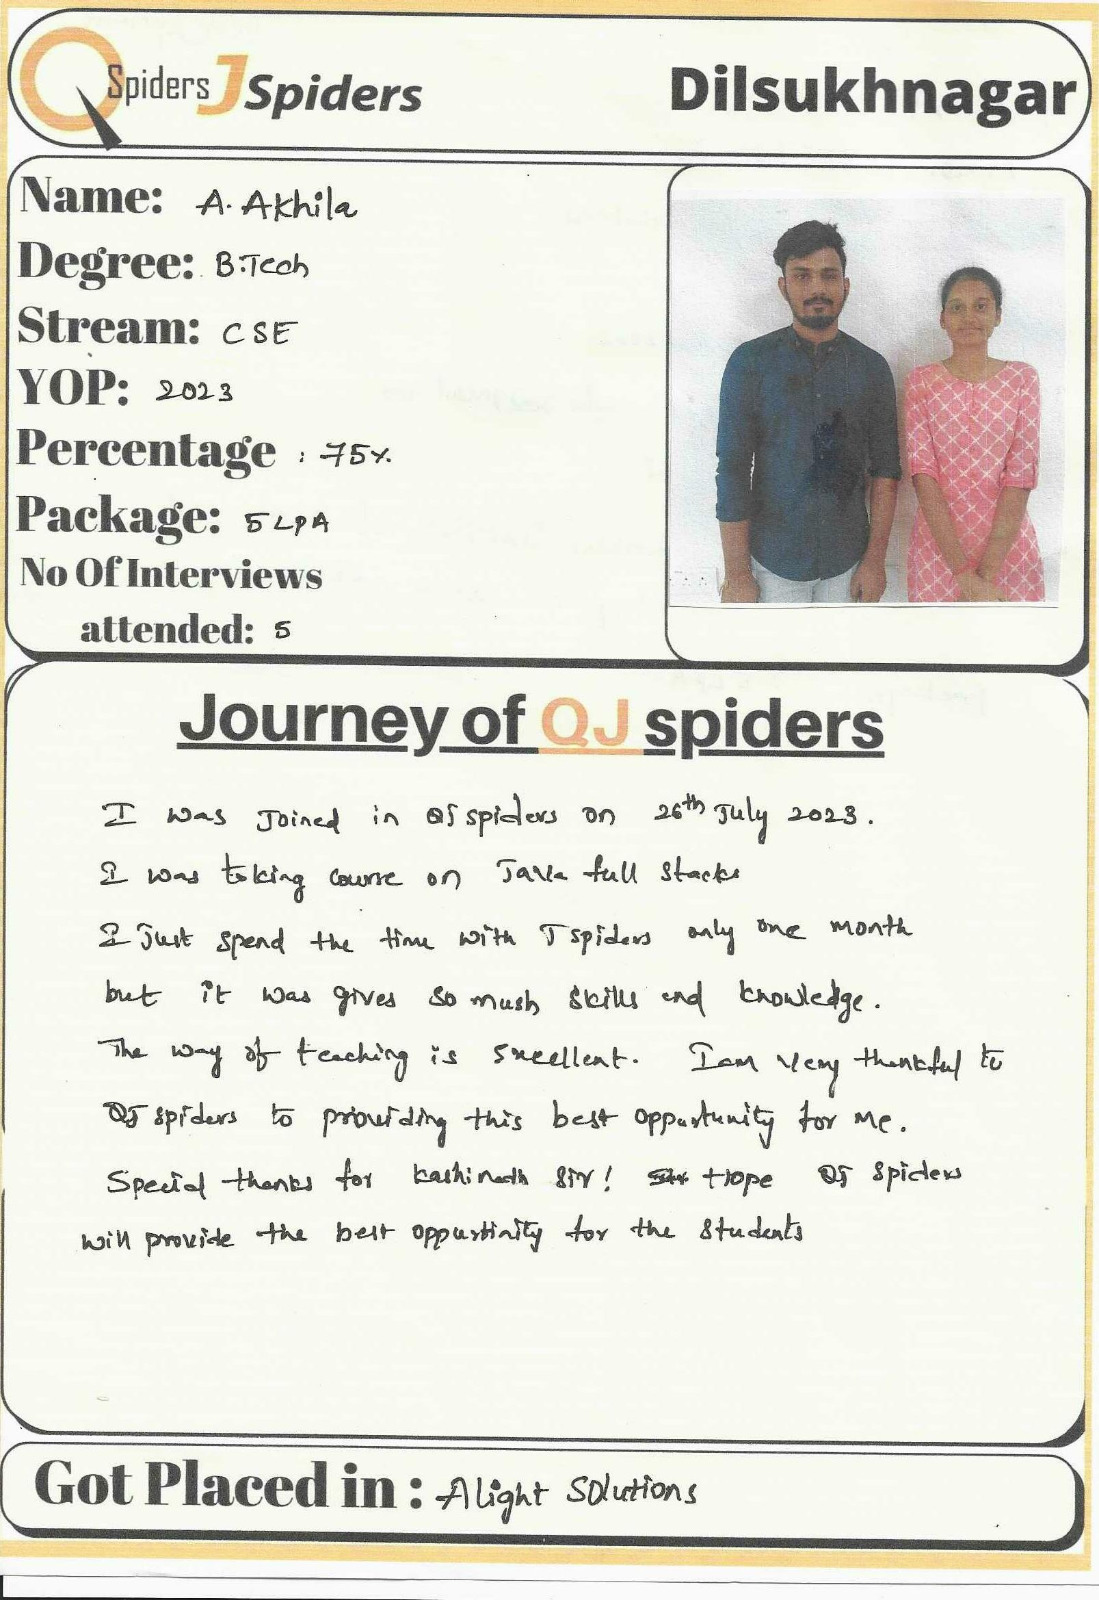 QSpiders JSpiders Dilsukhnagar
Name: A. Akhila
Degree: B.Tech
Stream: CSE
YOP: 2023
Percentage : 75%
Package: 5 LPA
No Of Interviews
attended: 5
Journey of QJ spiders
I was Joined in QJ spiders on 26th July 2023.
I was taking course on Java full stacks
I Just spend the time with J spiders only one month
but it was gives so mush skills and knowledge.
The way of teaching is Sxcellent. I am very thankful to
QJ spiders to providing this best oppurtunity for me.
Special thanks for kashinath sir! Hope QJ Spiders
will provide the best oppurtinity for the students
Got Placed in : Alight Solutions